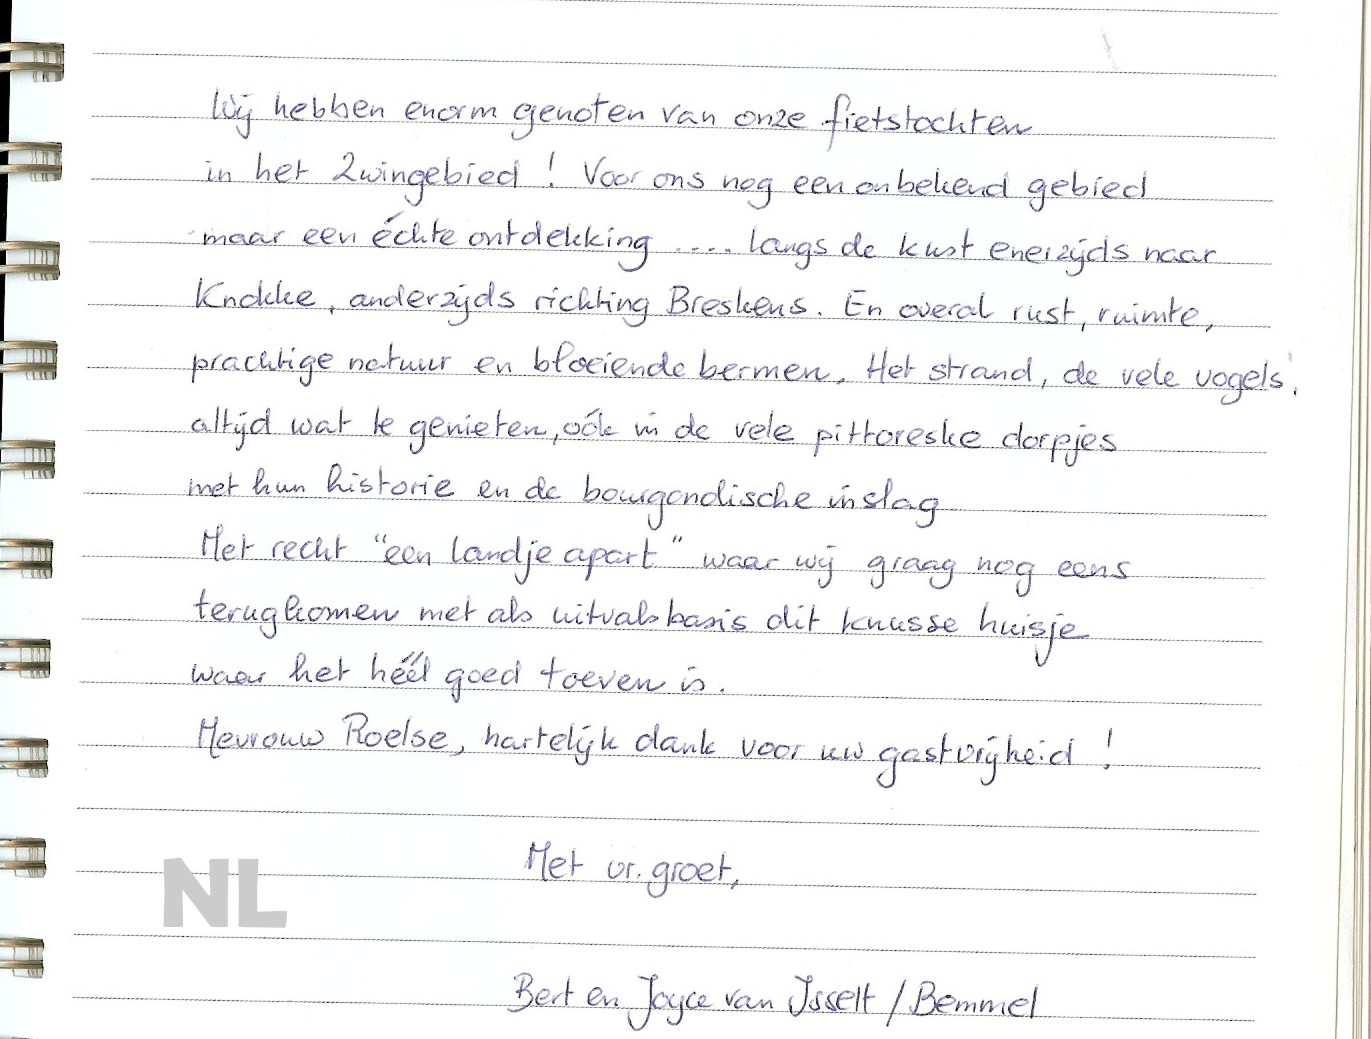 Wij hebben enorm genoten van onze fietstochten
in het Zwingebied ! Voor ons nog een onbekend gebied
maar een échte ontdekking .... langs de kust enerzijds naar
Knokke, anderzijds richting Breskens. En overal rust, ruimte,
prachtige natuur en bloeiende bermen. Het strand, de vele vogels,
altijd wat te genieten, oók in de vele pittoreske dorpjes
met hun historie en de bourgondische inslag
Met recht "een landje apart" waar wij graag nog eens
terugkomen met als uitvalsbasis dit knusse huisje
waar het héél goed toeven is.
Mevrouw Roelse, hartelijk dank voor uw gastvrijheid !
Met vr. groet,
NL
Bert en Joyce van IJsselt / Bemmel